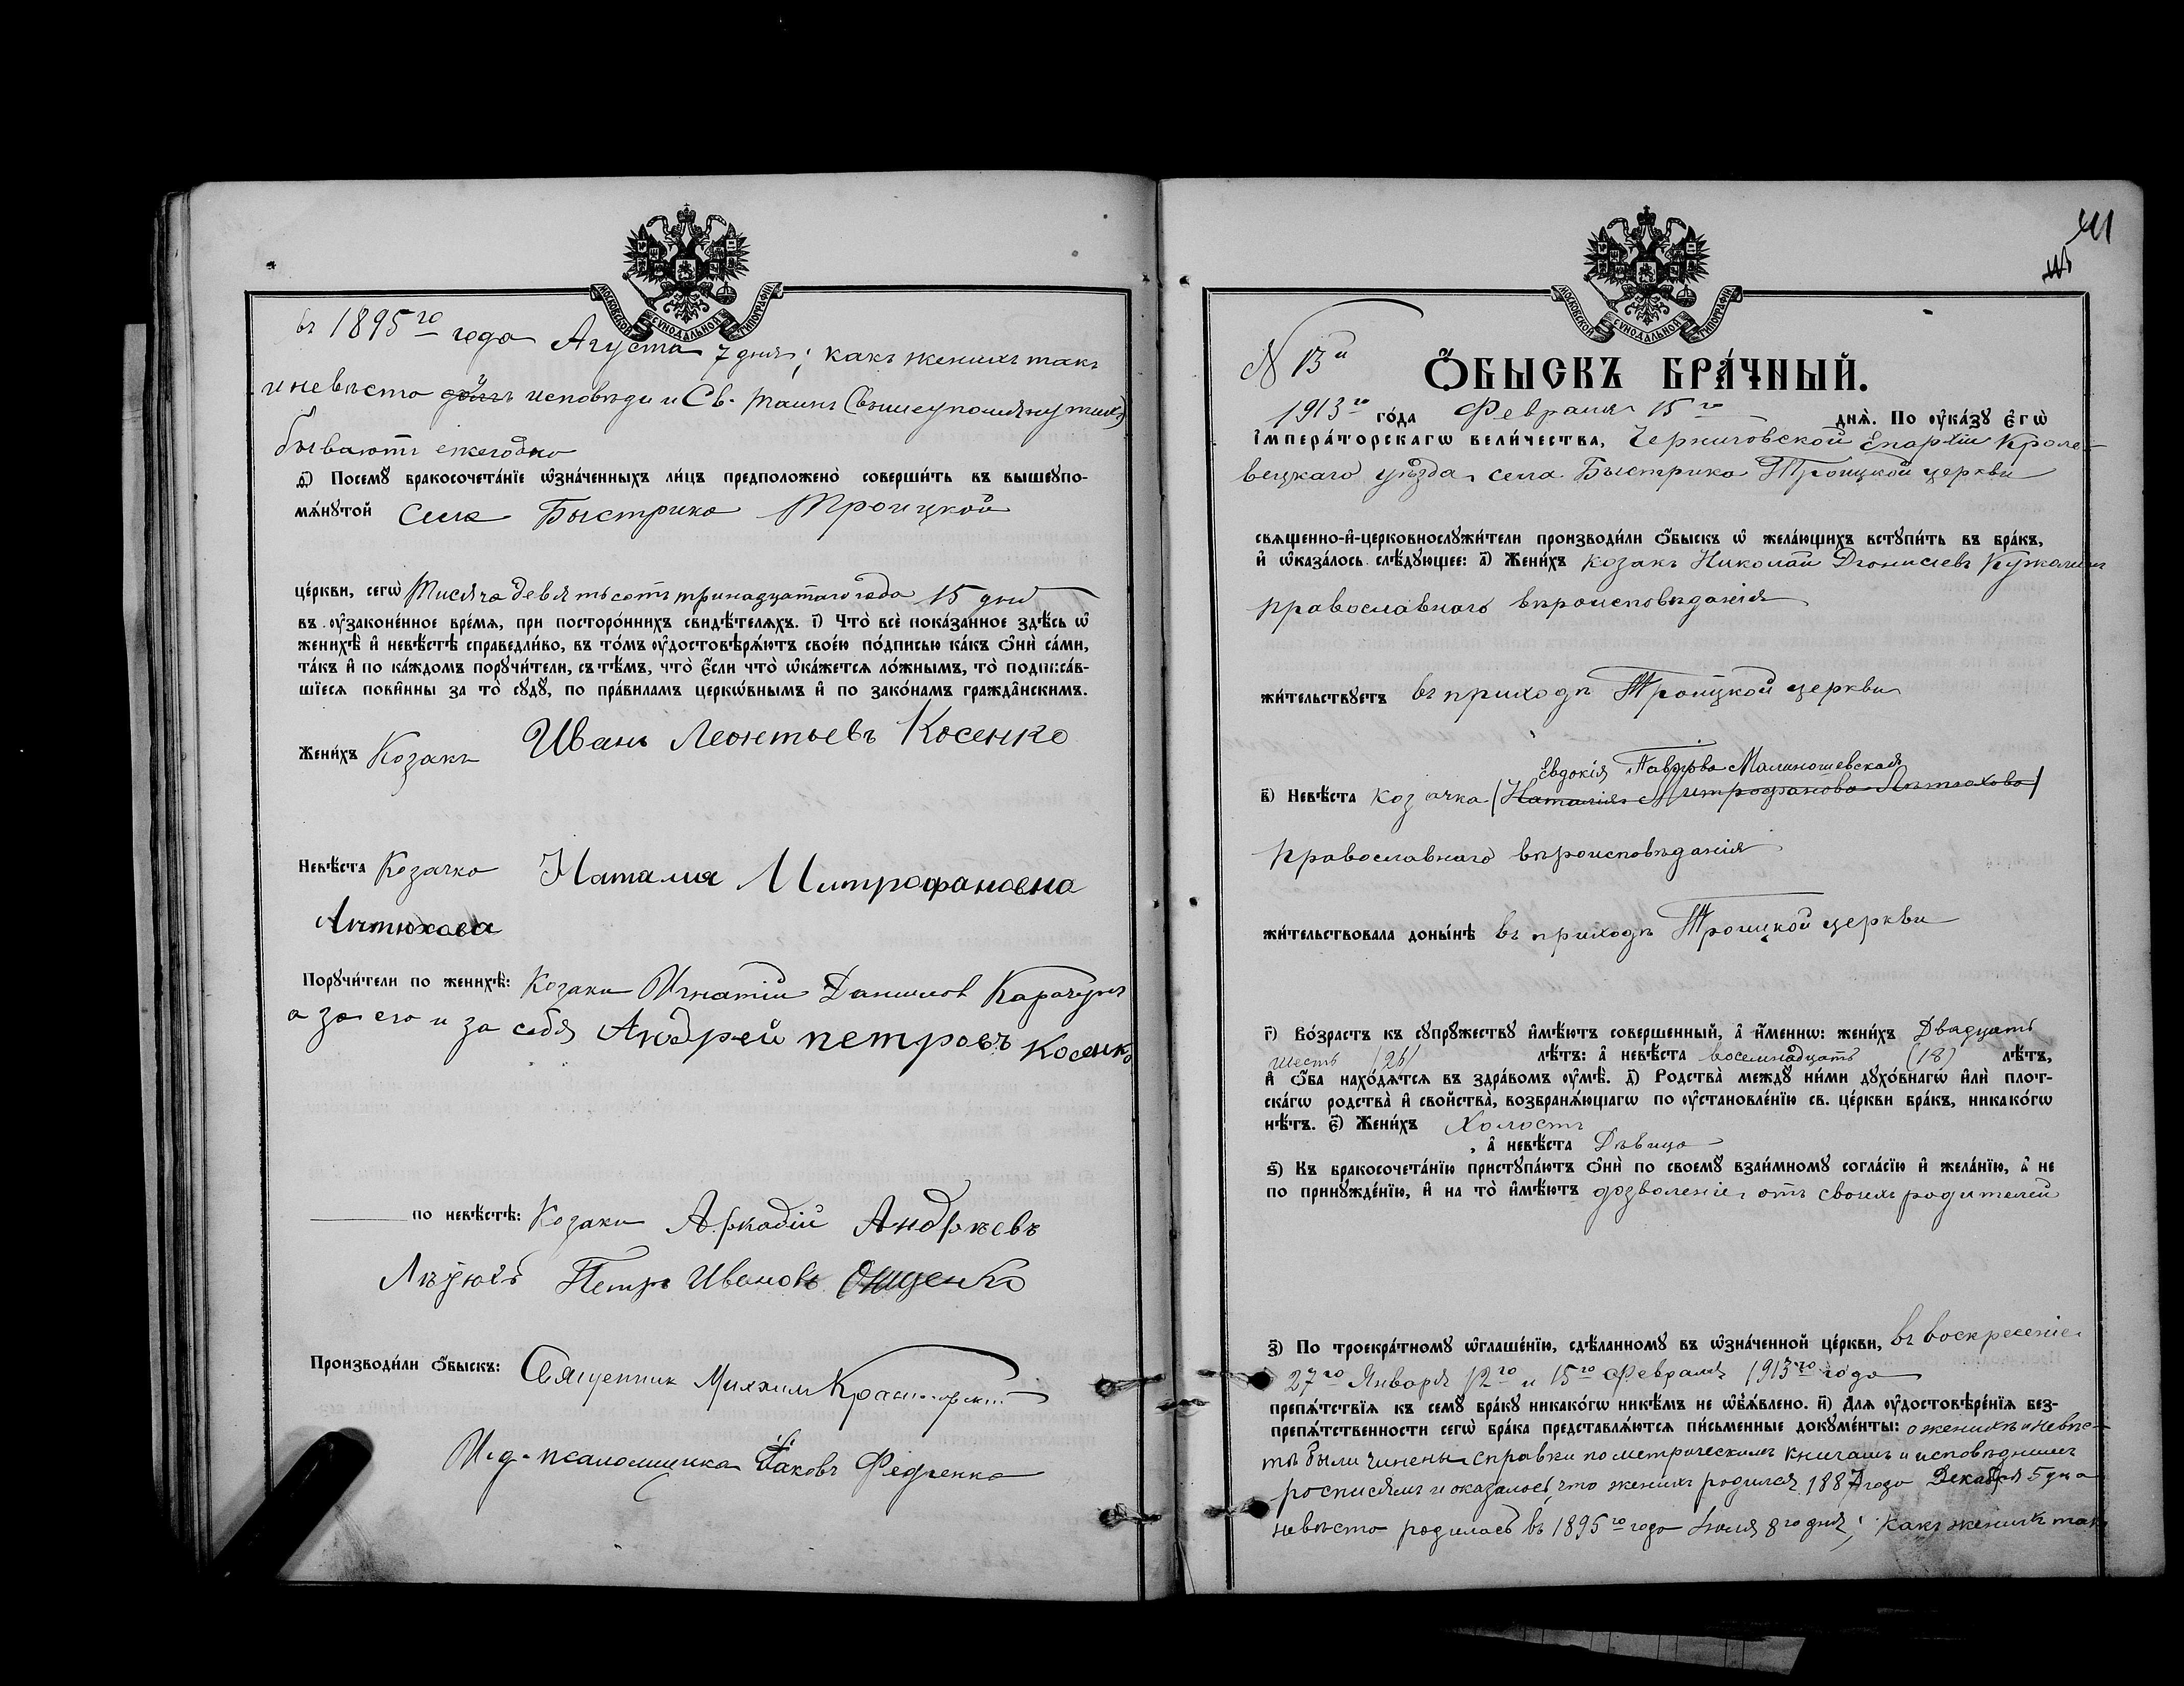 МОСКОВСКОЙ СѴНОДАЛЬНОЙ ТИПОГРАФІИ
въ 1895го года Августа 7 дня; какъ женихъ такъ
и невѣста у исповѣди и Св. таинъ (вышеупомянутыхъ)
бываютъ ежегодно
д҃) Посемꙋ̀ бракосочета́нїе ѡ҆зна́ченныхъ ли́цъ предположено̀ соверши́ть въ вышеꙋпо-
мѧ́нꙋтой села Быстрика Троицкой
це́ркви, сегѡ̀ Тисяча девятьсотъ тринадцатаго года 15 дня
въ ᲂу҆зако́ненное вре́мѧ, при посторо́ннихъ свидѣ́телѧхъ. і҃) Что̀ всѐ пока́занное здѣ́сь ѡ҆
женихѣ̀ и҆ невѣ́стѣ справедли́во, въ то́мъ ᲂу҆достовѣрѧ́ютъ свое́ю по́дписью ка́къ ѻ҆нѝ са́ми,
та́къ и҆ по ка́ждомъ порꙋчи́тели, съ тѣ́мъ, что̀ є҆́сли что̀ ѡ҆ка́жетсѧ ло́жнымъ, то̀ подписа́в-
шїесѧ пови́нны за то̀ сꙋдꙋ̀, по пра́виламъ церкѡ́внымъ и҆ по зако́намъ гражда́нскимъ.
Жени́хъ Козакъ Иванъ Леонтьевъ Косенко
Невѣ́ста Козачка Наталия Митрофановна
Антюхова
Порꙋчи́тели по женихѣ̀: Козаки Игнатій Данилов Карачунъ
а за его и за себя Андрей петровъ Косенко
по невѣ́стѣ: Козаки Аркадій Андрѣевъ
Петръ Ивановъ Онищенко
Производи́ли ѻ҆́быскъ: Священникъ Михаилъ
И. д. псаломщика Іаковъ Федченко
41
МОСКОВСКОЙ СѴНОДАЛЬНОЙ ТИПОГРАФІИ
N 13й
Ѻ҆́БЫСКЪ БРА́ЧНЫЙ.
1913го го́да Февраля 15го днѧ̀. По ᲂу҆ка́зꙋ є҆гѡ̀
і҆мпера́торскагѡ вели́чества, Черниговской Епархіи Кроле-
вецкаго уѣзда, села Быстрика Троицкой церкви
свѧщенно-и҆-церковнослꙋжи́тели производи́ли ѻ҆́быскъ ѡ҆ жела́ющихъ встꙋпи́ть въ бра́къ,
и҆ ѡ҆каза́лось слѣ́дꙋющее: а҃) Жени́хъ козакъ Николай Діонисіевъ
православнаго вѣроисповѣданія
жи́тельствꙋетъ въ приходѣ Троицкой церкви
Евдокія Павлова Малишевская
в҃) Невѣ́ста козачка (Наталія Митрофанова Антюхова)
православнаго вѣроисповѣданія
жи́тельствовала доны́нѣ въ приходѣ Троицкой церкви
г҃) Во́зрастъ къ сꙋпрꙋ́жествꙋ и҆мѣ́ютъ соверше́нный, а҆ и҆́меннѡ: жени́хъ Двадцать
шесть (26) лѣ́тъ: а҆ невѣ́ста восемнадцать (18) лѣ́тъ,
и҆ ѻ҆́ба нахо́дѧтсѧ въ здра́вомъ ᲂу҆мѣ̀. д҃) Родства̀ междꙋ̀ ни́ми дꙋхо́внагѡ и҆лѝ плот-
ска́гѡ родства̀ и҆ свойства̀, возбранѧ́ющагѡ по ᲂу҆становле́нїю св. це́ркви бра́къ, никако́гѡ
нѣ́тъ. є҃) Жени́хъ Холостъ
, а҆ невѣ́ста Дѣвица
ѕ҃) Къ бракосочета́нїю пристꙋпа́ютъ ѻ҆нѝ по своемꙋ̀ взаи́мномꙋ согла́сїю и҆ жела́нїю, а҆ не
по принꙋжде́нїю, и҆ на то̀ и҆мѣ́ютъ дозволеніе отъ своихъ родителей
з҃) По троекра́тномꙋ ѡ҆глаше́нїю, сдѣ́ланномꙋ въ ѡ҆зна́ченной це́ркви, въ воскресеніе
27го Января 12го и 15го Февраля 1913го года
препѧ́тствїѧ къ семꙋ̀ бра́кꙋ никако́гѡ никѣ́мъ не ѡ҆б̾ѧ́влено. и҃) Длѧ ᲂу҆достовѣре́нїѧ без-
препѧ́тственности сегѡ̀ бра́ка представлѧ́ютсѧ пи́сьменные докꙋме́нты: о женихѣ и невѣс-
тѣ были чинены справки по метрическимъ книгамъ и исповѣднымъ
росписямъ и оказалось, что женихъ родился 1887 года Декабря 5 дня
невѣста родилась въ 1895го года Іюля 8го дня; какъ женихъ такъ